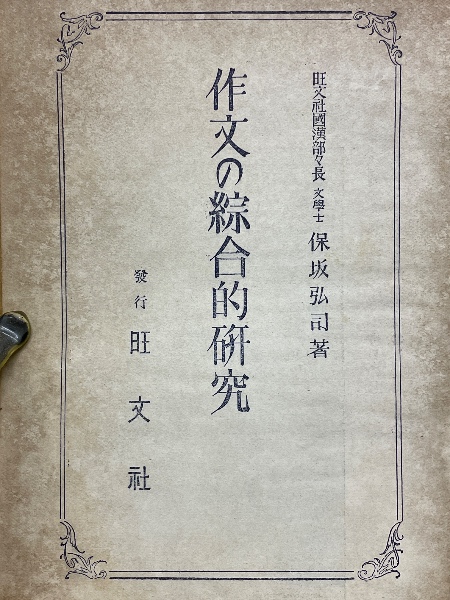 旺文社國漢部々長 文學士 保坂弘司著
作文の綜合的研究
發行 旺文社